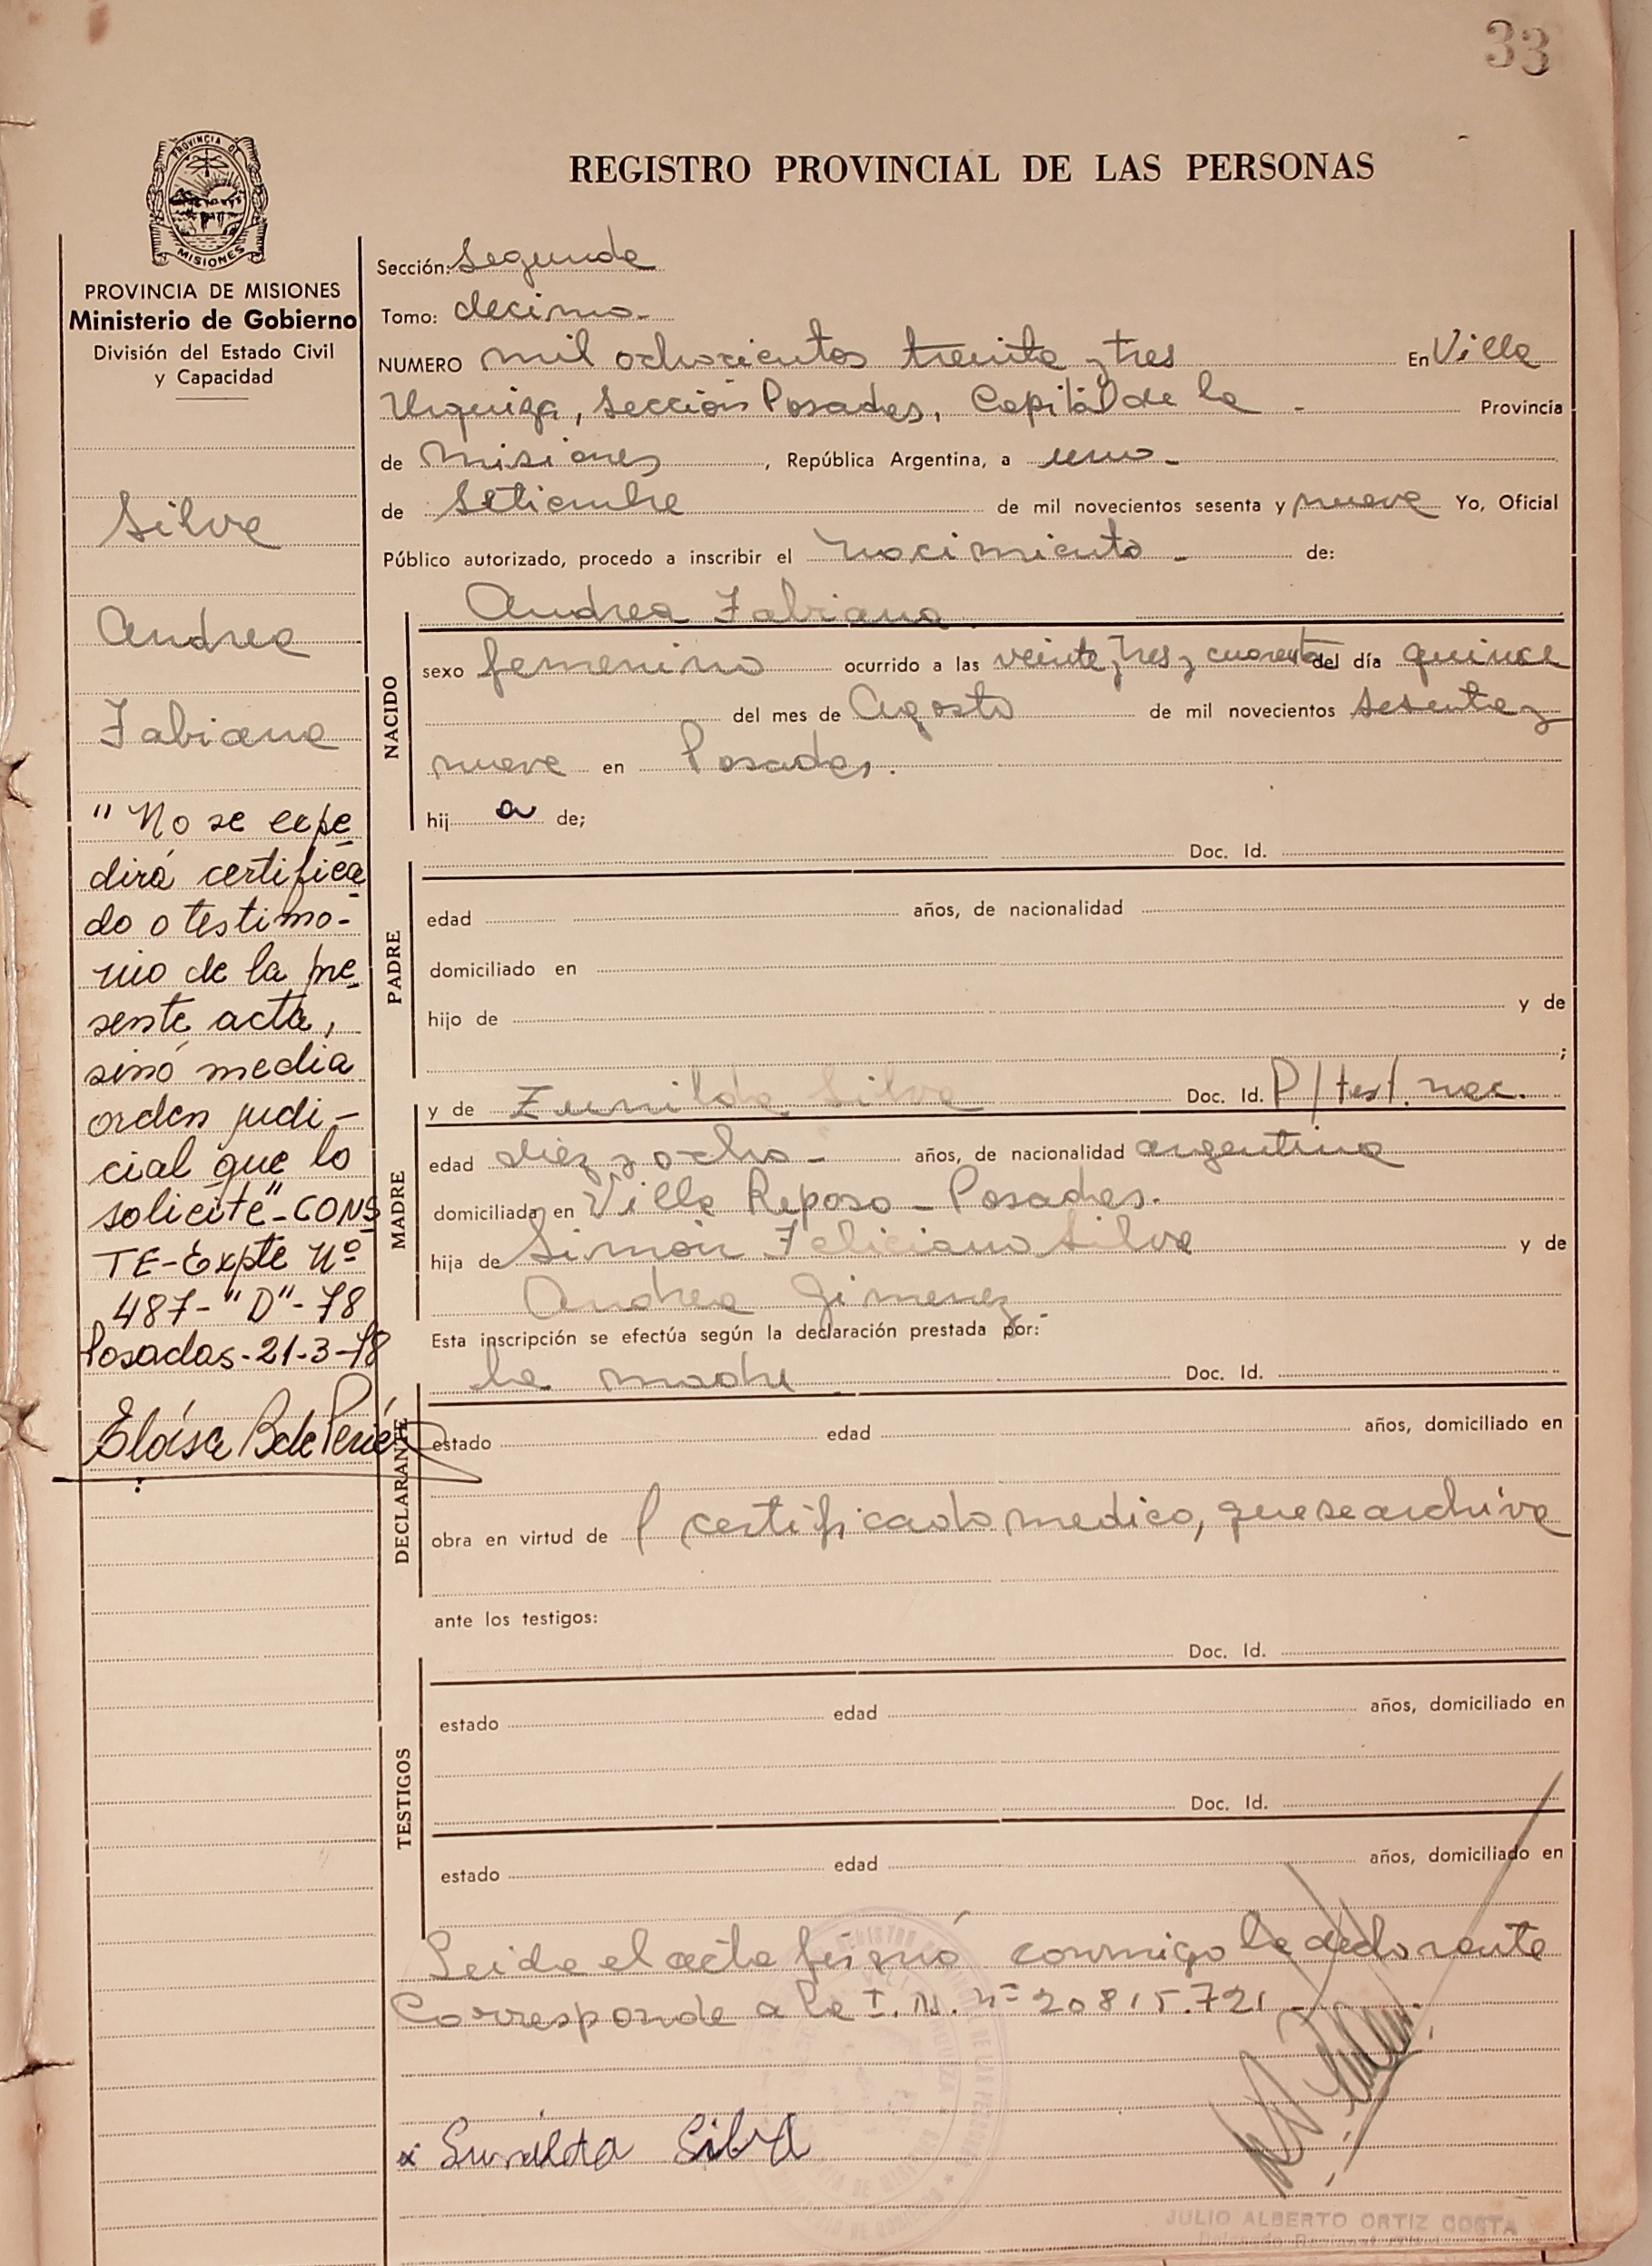 33
PROVINCIA DE
MISIONES
PROVINCIA DE MISIONES
Ministerio de Gobierno
División del Estado Civil
y Capacidad
Silva
Andrea
Fabiana
"No se expe
dirá certifica
do o testimo-
nio de la pre
sente acta,
sinó media
orden judi-
cial que lo
solicite"-CONS
TE-Expte Nº
487-"D"-78
Posadas-21-3-78
Eloísa B de
REGISTRO PROVINCIAL DE LAS PERSONAS
Sección: Segunda
Tomo: decimo-
NUMERO mil ochocientos treinta y tres En Villa
Urquiza, Sección Posadas, Capital de la - Provincia
de Misiones, República Argentina, a uno-
de Setiembre de mil novecientos sesenta y nueve Yo, Oficial
Público autorizado, procedo a inscribir el nacimiento- de:
Andrea Fabiana
NACIDO
sexo femenino ocurrido a las veinte y tres y cuarenta del día quince
del mes de Agosto de mil novecientos sesenta y
nueve en Posadas.
hij a de;
PADRE
Doc. Id.
edad años, de nacionalidad
domiciliado en
hijo de y de
;
MADRE
y de Zunilda Silva Doc. Id. P/test. nac.
edad diez y ocho- años, de nacionalidad argentina
domiciliada en Villa Reposo-Posadas.
hija de Simón Feliciano Silva y de
Andrea Gimenez.
Esta inscripción se efectúa según la declaración prestada por:
DECLARANTE
la madre Doc. Id.
estado edad años, domiciliado en
obra en virtud de certificado medico, que se archiva
ante los testigos:
TESTIGOS
Doc. Id.
estado edad años, domiciliado en
Doc. Id.
estado edad años, domiciliado en
Leida el acta firmó conmigo la declarante
Corresponde a la I. N. nº 20815.721-
x Sunilda Silva
JULIO ALBERTO ORTIZ COSTA